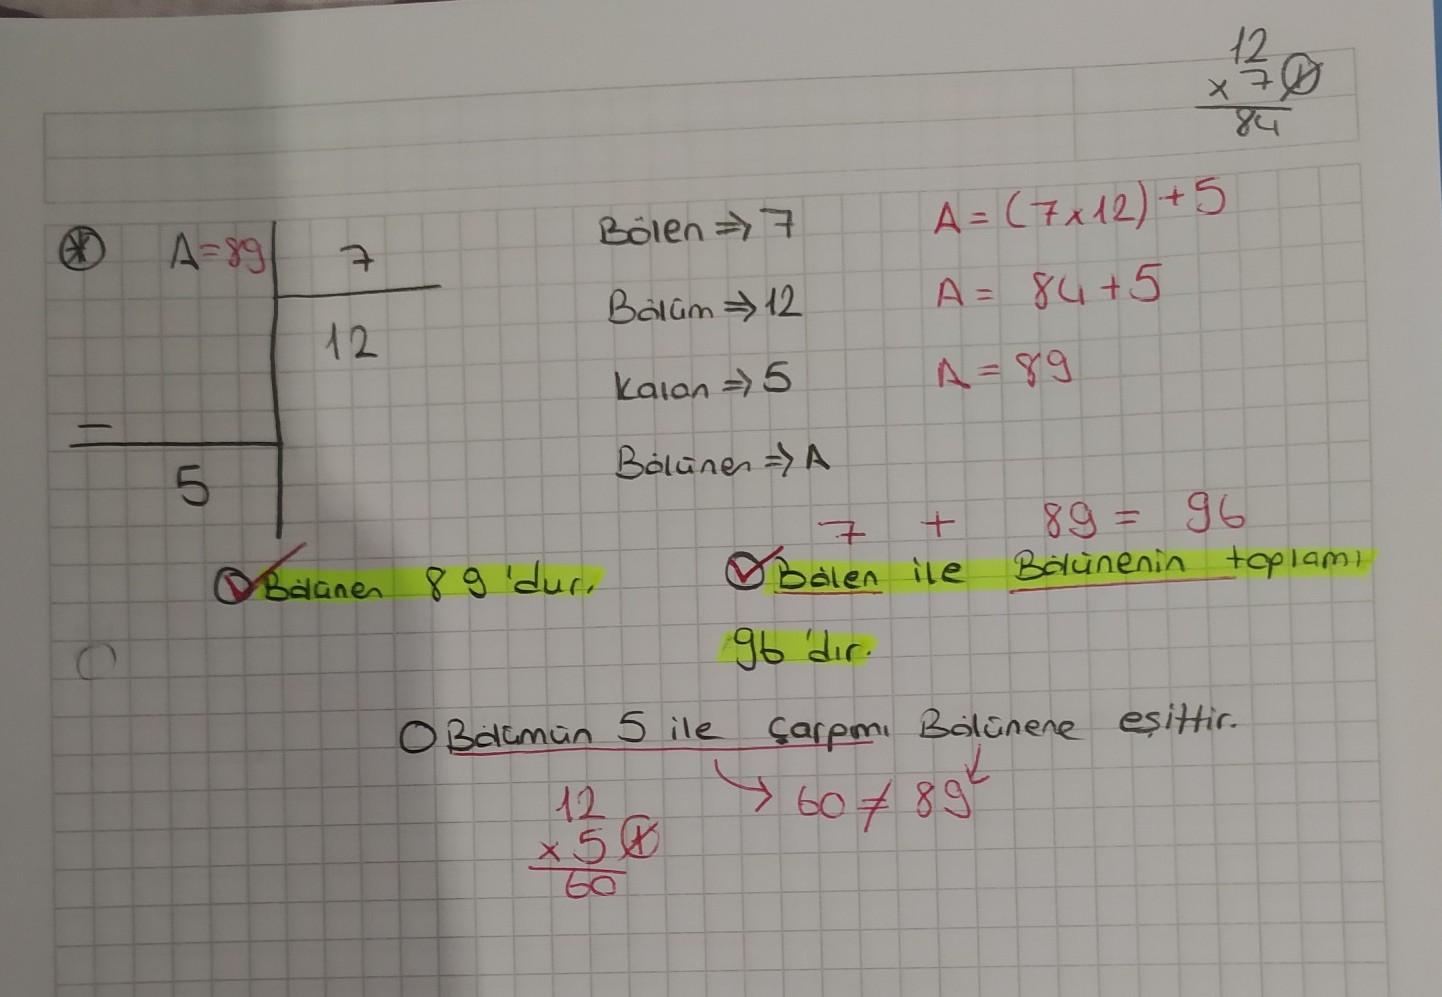 12
x 7
84
A=89 7
12
5
Bölen ⇒ 7
Bölüm ⇒ 12
Kalan ⇒ 5
Bölünen ⇒ A
A = (7x12) + 5
A = 84 + 5
A = 89
Bölünen 89'dur.
7 + 89 = 96
Bölen ile Bölünenin toplamı
96'dır.
Bölümün 5 ile çarpımı Bölünene eşittir.
60 ≠ 89
12
x 5
60